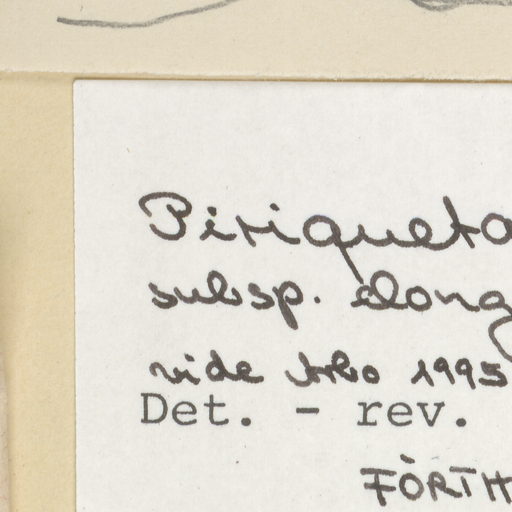 Piriqueta
subsp. elong
vide Arbo 1995
Det. - rev.
FÒRTH